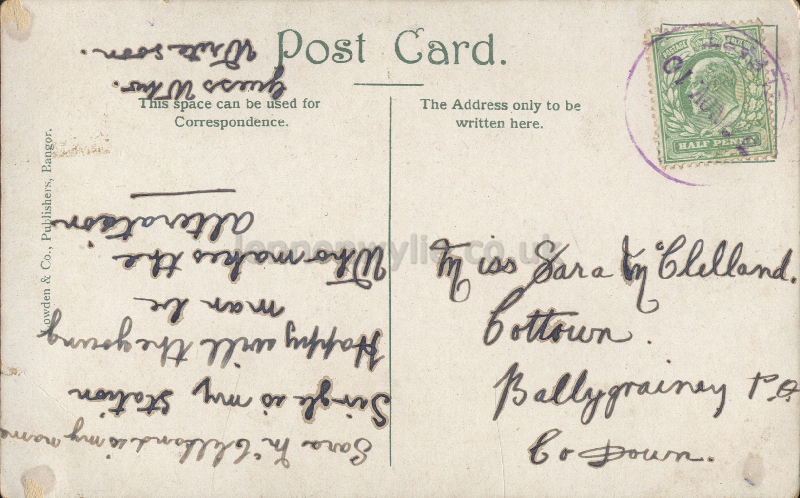 Post Card.
This space can be used for
Correspondence.
The Address only to be
written here.
Lowden & Co., Publishers, Bangor.
POSTAGE
HALF PENNY
NOV 10
Miss Sara McClelland.
Cottown.
Ballygrainey P.O
Co Down.
Sara McClelland is my name
Single is my Station
Happy will the young
man be
Who makes the
alteration
Guess Who.
Write soon.
lennonwylie.co.uk